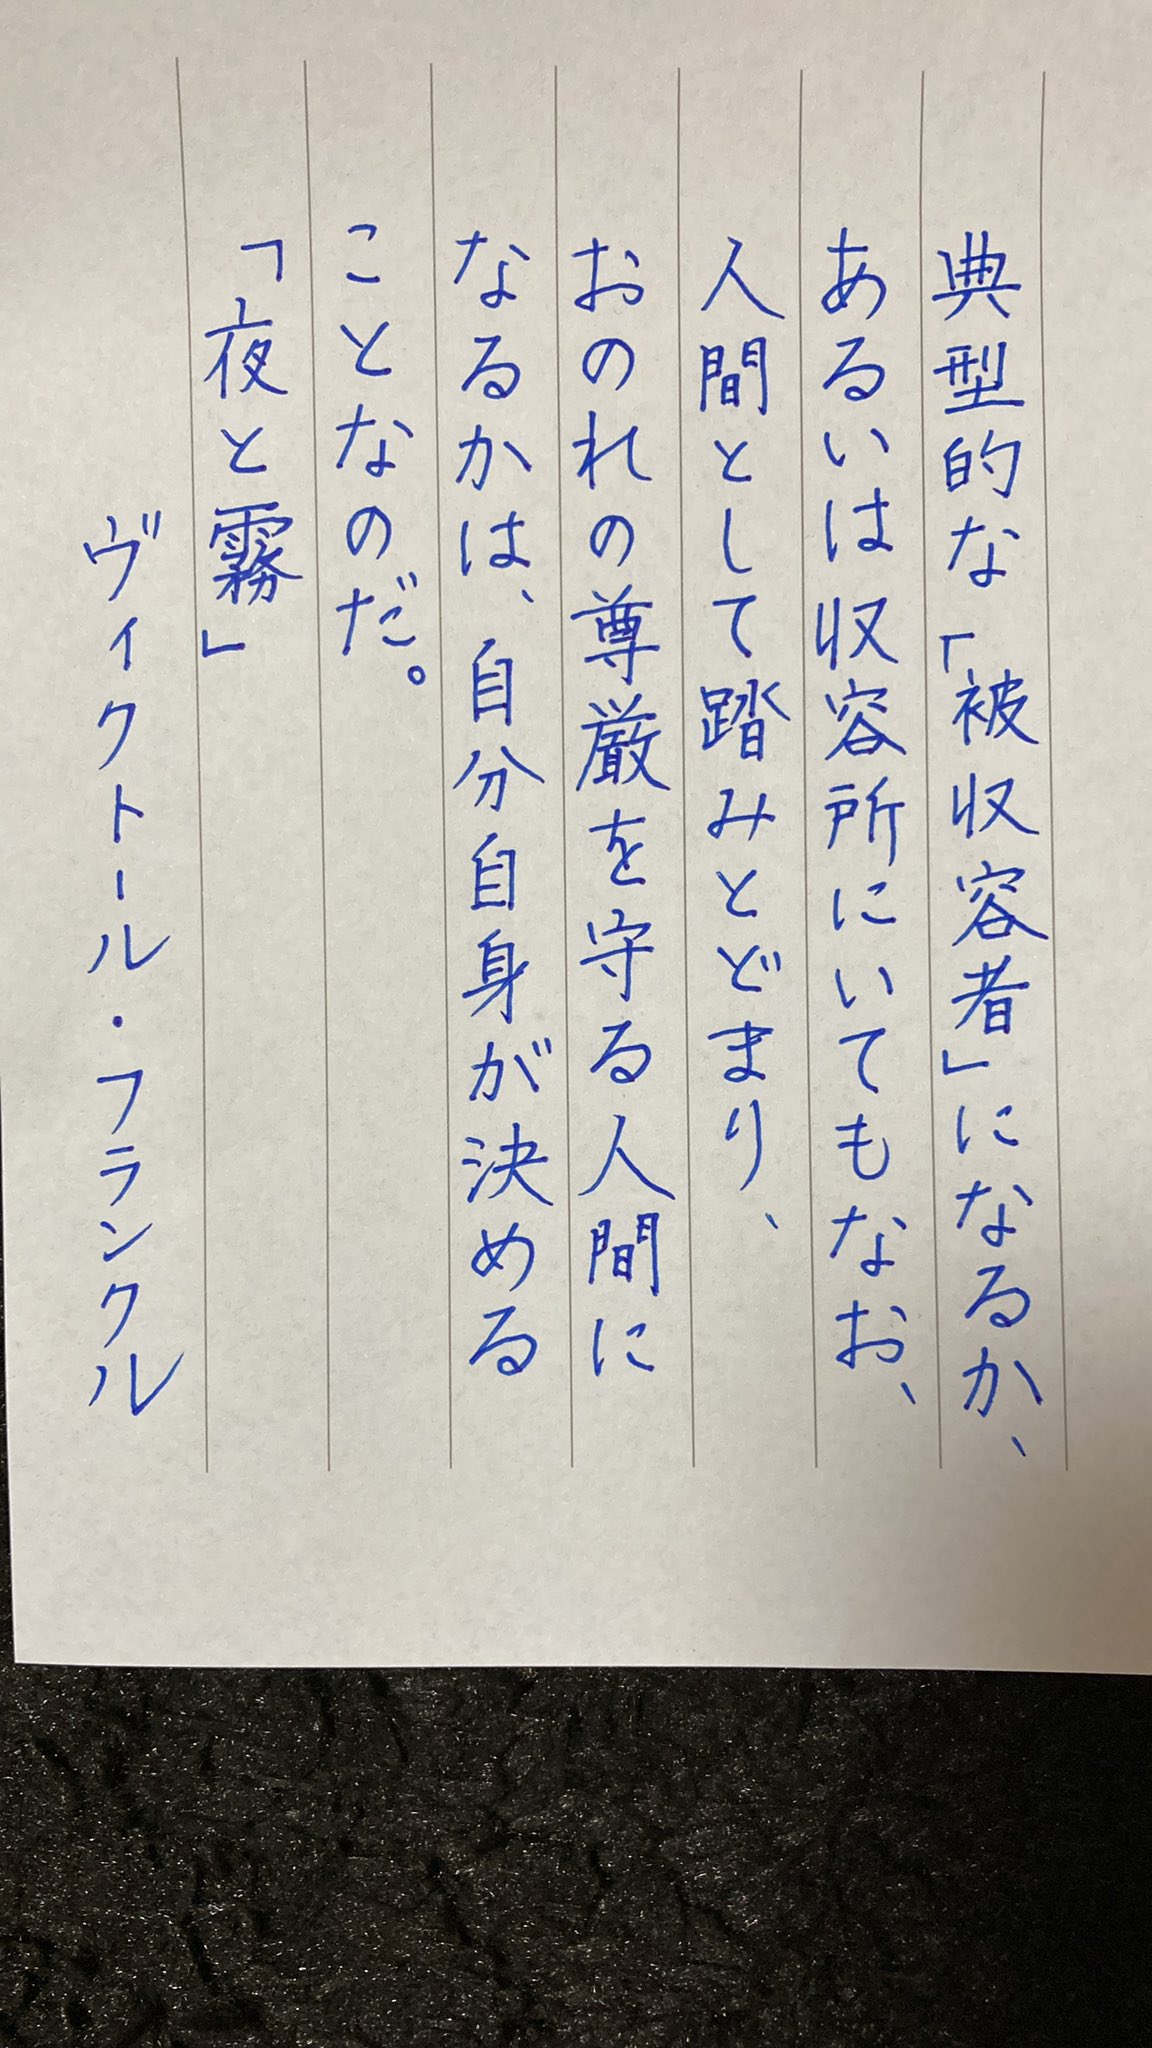 典型的な「被収容者」になるか、
あるいは収容所にいてもなお、
人間として踏みとどまり、
おのれの尊厳を守る人間に
なるかは、自分自身が決める
ことなのだ。
「夜と霧」
ヴィクトール・フランクル